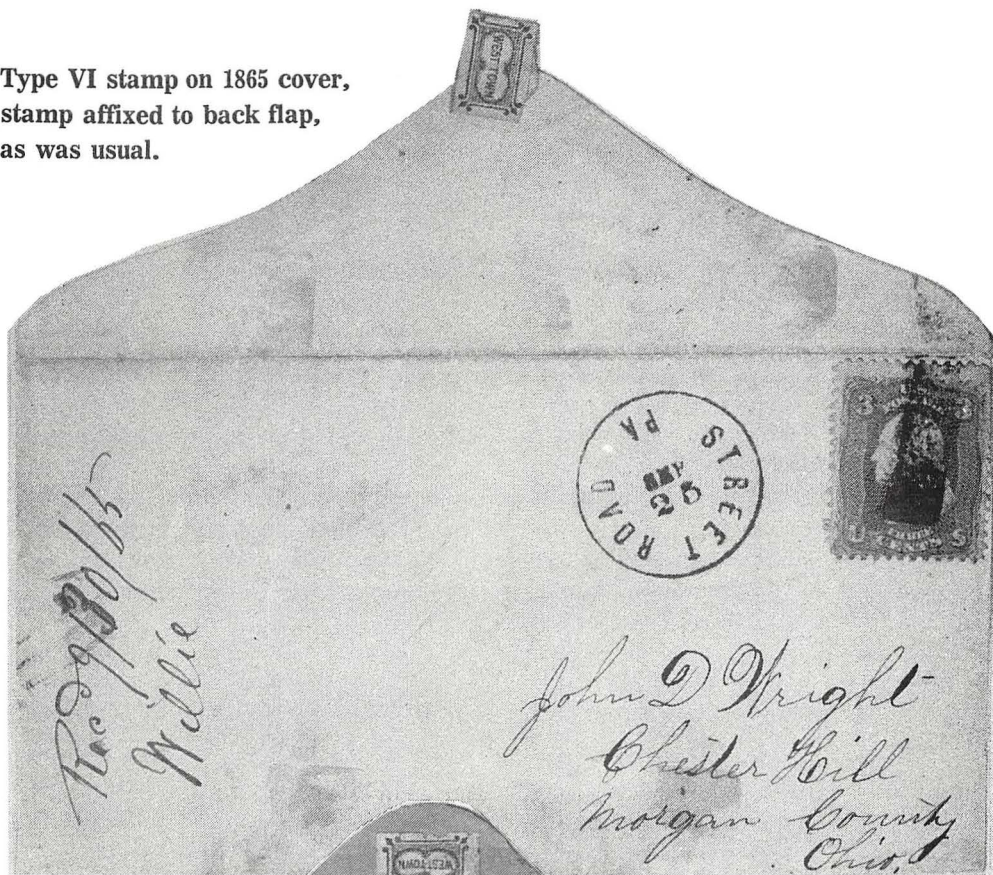 Type VI stamp on 1865 cover,
stamp affixed to back flap,
as was usual.
WEST-TOWN
STREET ROAD PA
SEP
3 3
U S
CENTS
Rec'd 9/30/65
Willie
John D Wright
Chester Hill
Morgan County
Ohio,
WEST-TOWN